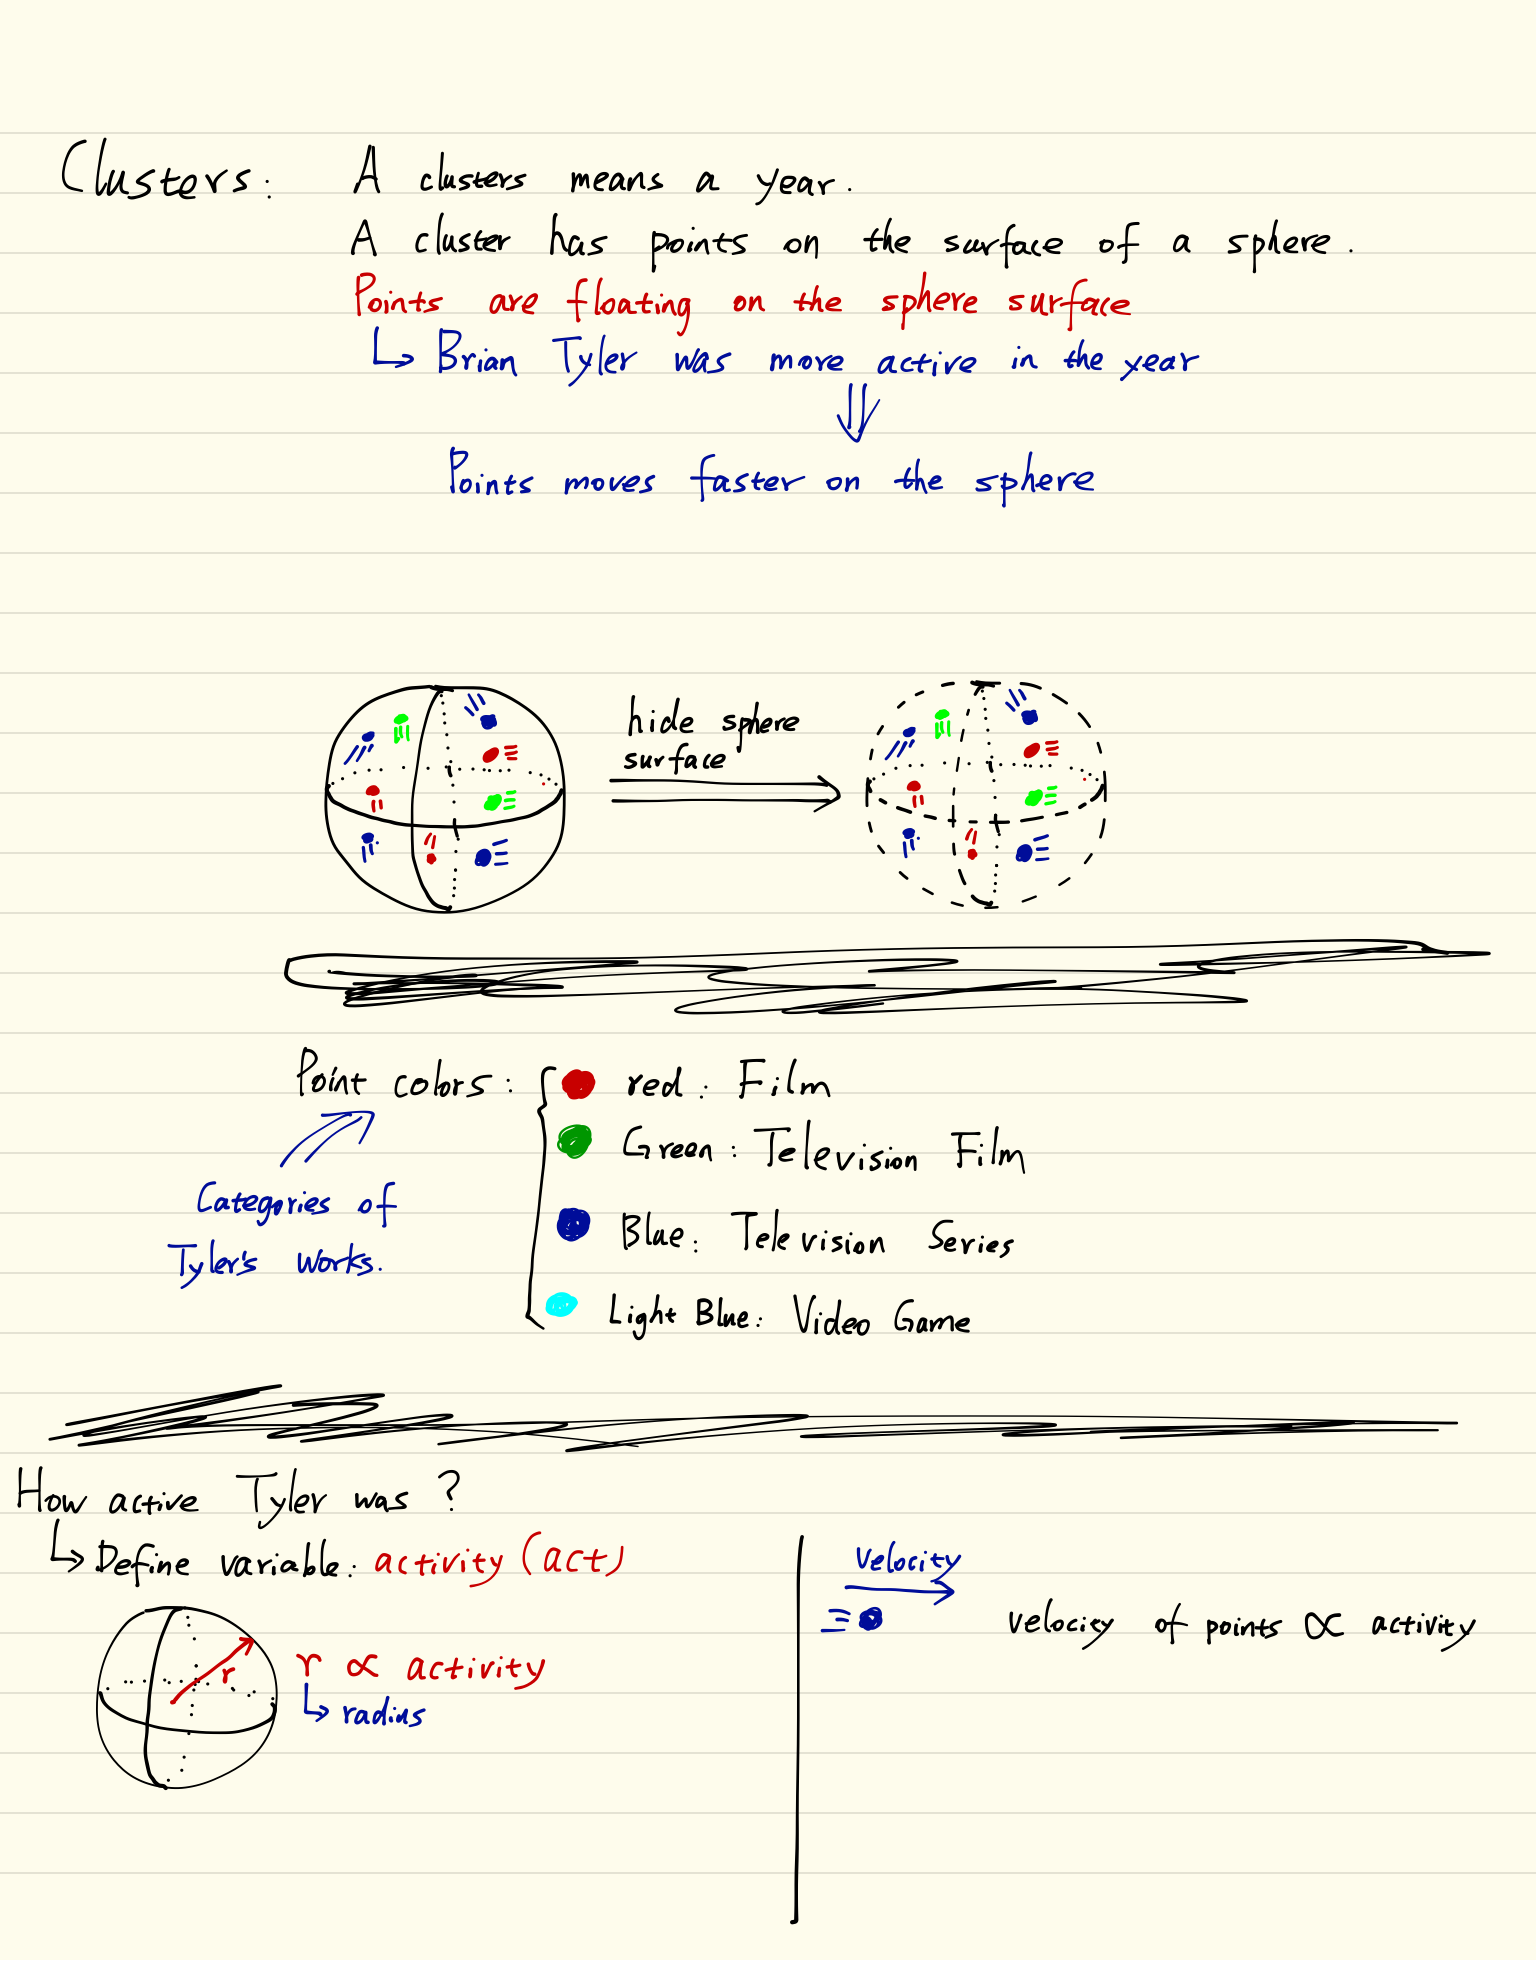 Clusters: A clusters means a year.
A cluster has points on the surface of a sphere.
Points are floating on the sphere surface
↳ Brian Tyler was more active in the year
⇓
Points moves faster on the sphere
hide sphere
surface
Point colors:
red: Film
Green: Television Film
Blue: Television Series
Light Blue: Video Game
Categories of
Tyler's works.
How active Tyler was?
↳ Define variable: activity (act)
r
r ∝ activity
↳ radius
velocity
velocity of points ∝ activity